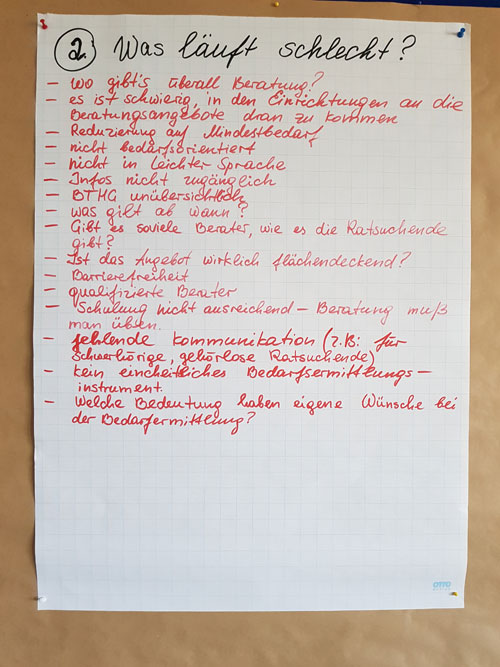 2. Was läuft schlecht?
- wo gibt's überall Beratung?
- es ist schwierig, in den Einrichtungen an die
Beratungsangebote dran zu kommen
- Reduzierung auf Mindestbedarf
- nicht bedarfsorientiert
- nicht in Leichter Sprache
- Infos nicht zugänglich
- BTHG unübersichtlich
- was gilt ab wann?
- Gibt es soviele Berater, wie es die Ratsuchende
gibt?
- Ist das Angebot wirklich flächendeckend?
- Barrierefreiheit
- qualifizierte Berater
- Schulung nicht ausreichend – Beratung muß
man üben.
- fehlende Kommunikation (z.B: für
schwerhörige, gehörlose Ratsuchende)
- kein einheitliches Bedarfsermittlungs-
instrument.
- Welche Bedeutung haben eigene Wünsche bei
der Bedarfermittlung?
OTTO